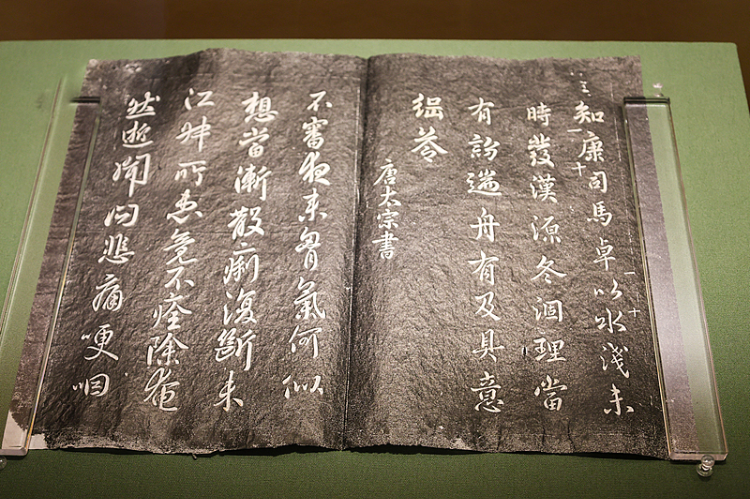 知康司馬卓以水淺未
時發漢源冬涸理當
有訪遄舟有及具意
苓
唐太宗書
不審夜來胃氣何似
想當漸散痢復斷未
江叔所患竟不痊除奄
然逝聞問悲痛哽咽